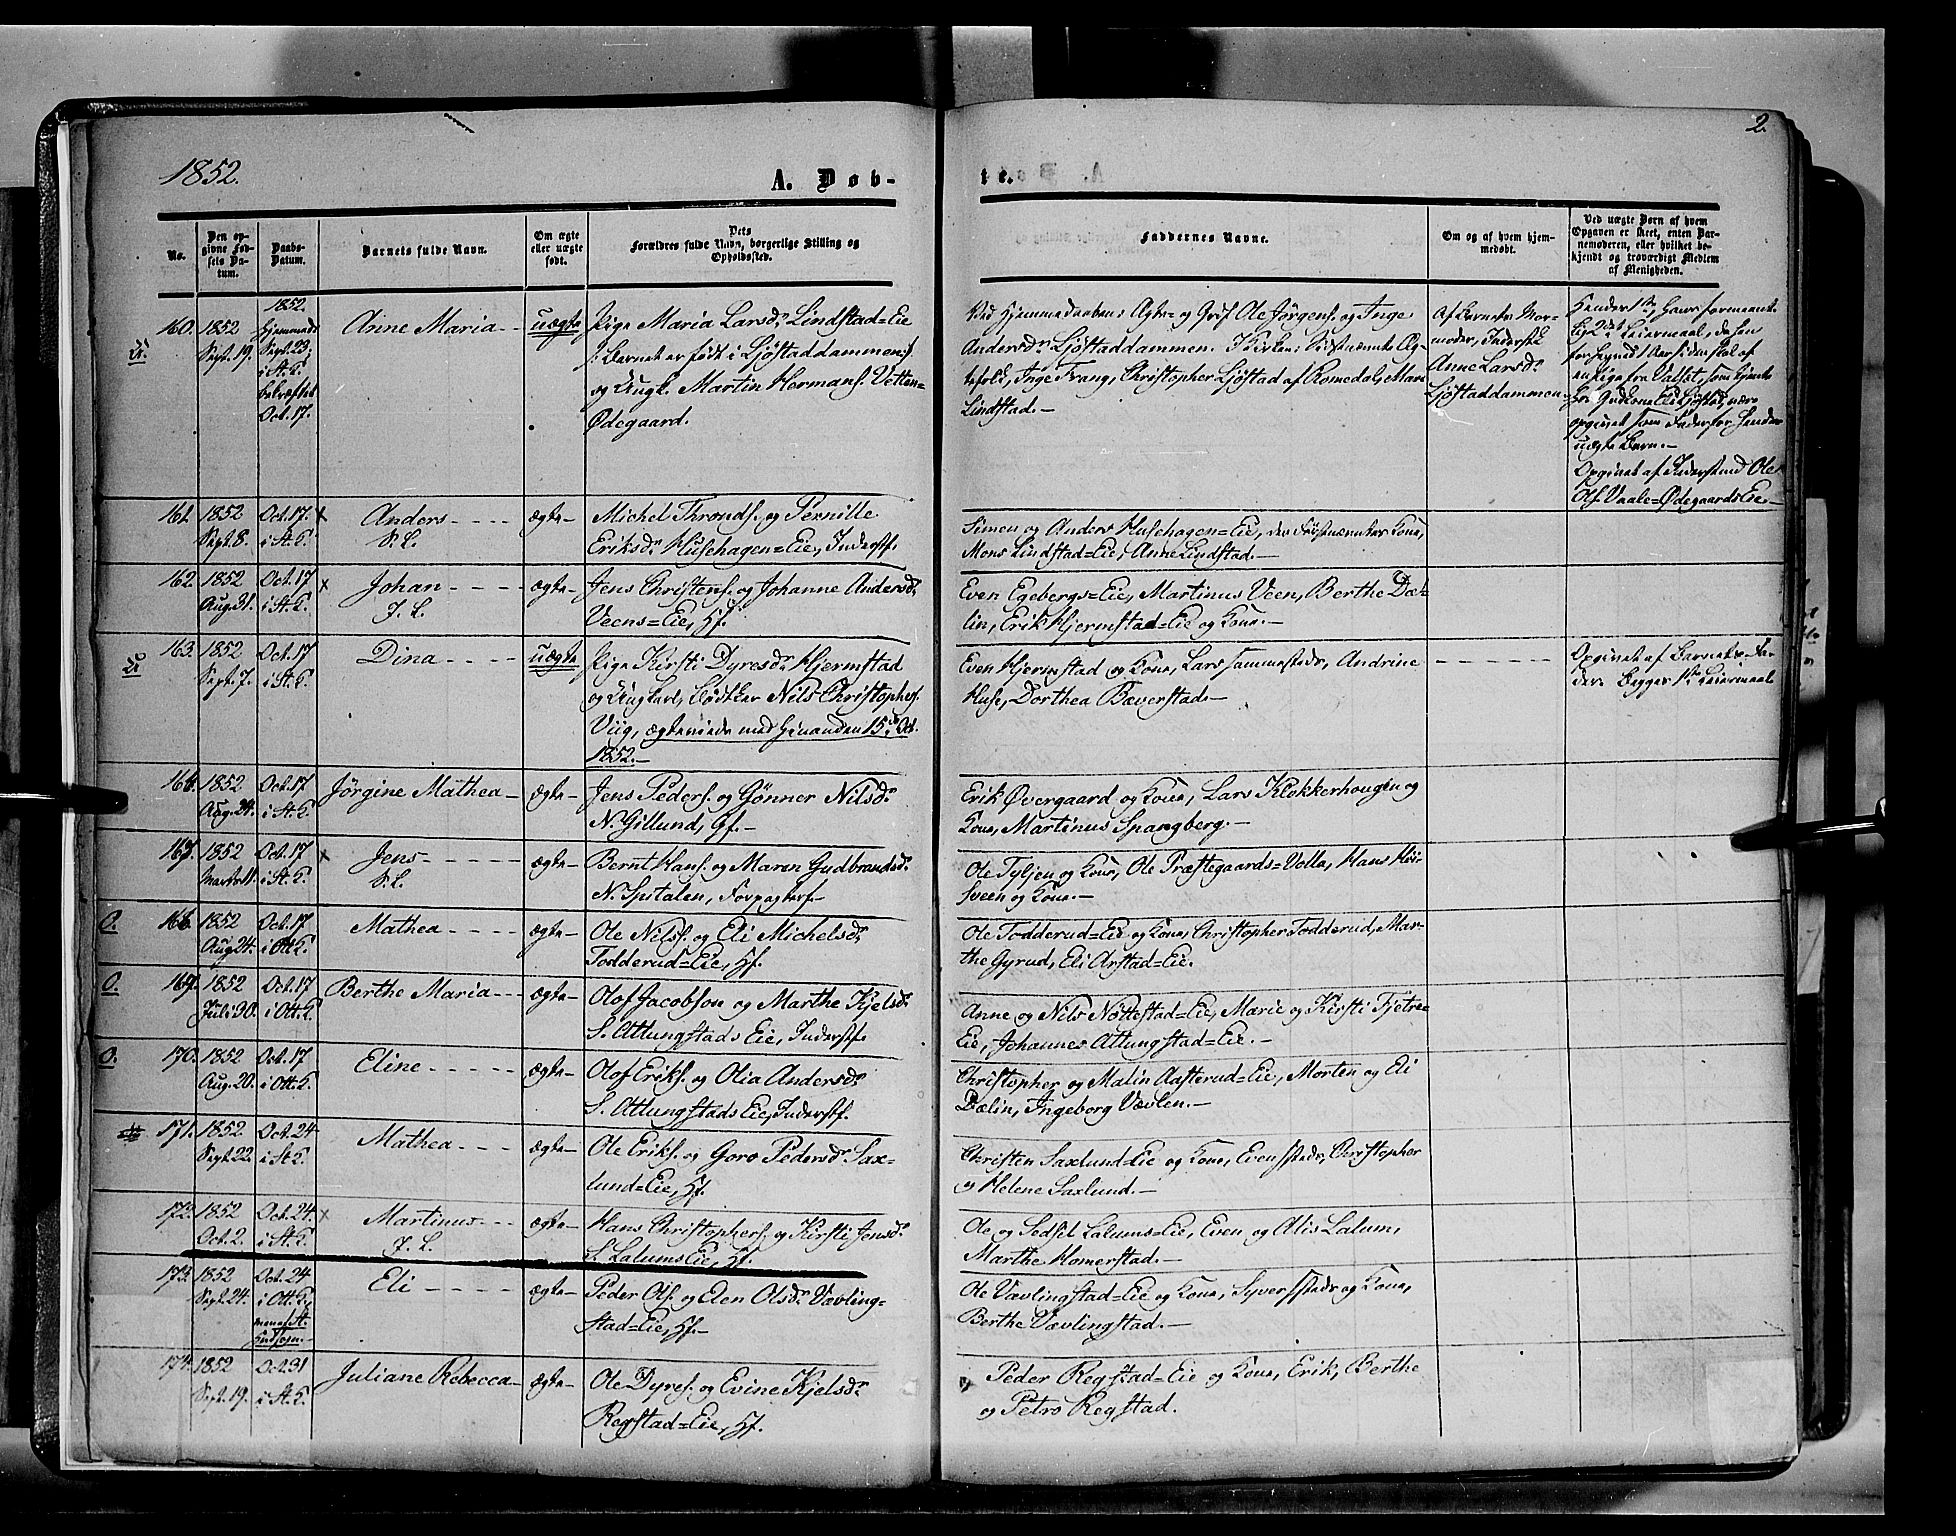 2.
1852.
A. Døb-
te.
No.
Den op-
givne Fød-
sels Da-
tum.
Daabs-
Datum.
Barnets fulde Navn.
Om ægte
eller uægte
født.
Dets
Forældres fulde Navn, borgerlige Stilling og
Opholdssted.
Faddernes Navne.
Om og af hvem hjem-
medøbt.
Ved uægte Børn af hvem
Opgaven er skeet, enten Bar-
nemoderen, eller hvilket be-
kjendt og troværdigt Medlem
af Menigheden.
160. 1852
Sept. 19.
1852.
Hjemmed.
Sept. 23,
i St. K.
bekræftet
Oct. 17.
Anne Maria
uægte
Pige Maria Larsd. Lindstad=Eie
/: Barnet er født i Ljøstaddammen :/
og Ungk. Martin Hermans. Vetten=
Ødegaard.
Ved Hjemmedaaben: Ole Jørgens. og Inge
Andersd. Ljøstaddammen. Kirken: Sidstnævnte Æg-
tefolk, Inge Frang, Christopher Ljøstad af Romedal, Mari
Lindstad.
Af Barnets Mor-
moder, Inderstk.
Anne Larsd.
Ljøstaddammen.
uægte Barn.
Opgivet af Inderstmd Ole
Ols. Vaale=Ødegaards Eie
161. 1852
Sept. 8.
Oct. 17.
i St. K.
x
Anders
S. L.
ægte
Michel Thronds. og Pernille
Eriksd. Husehagen=Eie, Inderstf.
Simen og Anders Husehagen=Eie, den Førstnævntes Kone,
Mons Lindstad=Eie, Anne Lindstad.
162. 1852
Aug. 31.
Oct. 17
i St. K.
x
Johan
J. L.
ægte
Jens Christens. og Johanne Andersd.
Veens=Eie, Hf.
Even Egebergs=Eie, Martinus Veen, Berthe Dæ-
lin, Erik Hjermstad=Eie og Kone.
163. 1852
Sept. 7.
Oct. 17
i St. K.
Dina
uægte
Pige Kirsti Dyresd. Hjermstad
og Ungkarl, Bødtker Nils Christophers.
Viig, ægteviede med hinanden 15. Oct.
1852.
Even Hjermstad og Kone, Lars sammesteds, Andrine
Huse, Dorthea Bæverstad.
Opgivet af Barnets Fa-
der. Begges 1ste Leiermaal
164. 1852
Aug. 24.
Oct. 17
i St. K.
Jörgine Mathea
ægte
Jens Peders. og Gønner Nilsd.
N. Gillund, Gf.
Erik Øvergaard og Kone, Lars Klokkerhougen og
Kone, Martinus Spangberg.
167. 1852
Marts 11.
Oct. 17
i St. K.
x
Jens
S. L.
ægte
Bernt Hans. og Maren Gudbrandsd.
N. Spitalen, Forpagterf.
Ole Tyljen og Kone, Ole Præstegaards=Volla, Hans Høi-
Sveen og Kone.
O.
166. 1852
Aug 24.
Oct. 17
i Ott. K.
Mathea
ægte
Ole Nilss. og Eli Michelsd.
Todderud=Eie, Hf.
Ole Todderud=Eie og Kone, Christopher Todderud, Mar-
the Gyrud, Eli Arstad=Eie.
O.
169. 1852
Juli 30.
Oct. 17
i Ott. K.
Berthe Maria
ægte
Olof Jacobsson og Marthe Kjelsd.
S. Attungstads Eie, Inderstf.
Anne og Nils Nöttestad=Eie, Marie og Kirsti Fjetre=
Eie, Johannes Attungstad=Eie.
O.
170. 1852
Aug. 20.
Oct. 17
i Ott. K.
Eline
ægte
Olof Eriks. og Olia Andersd.
S. Attungstads Eie, Inderstf.
Christopher og Malin Aasterud=Eie, Morten og Eli
Dælin, Ingeborg Vævlen.
171. 1852
Sept. 22.
Oct. 24
i St. K.
Mathea
ægte
Ole Eriks. og Goro Pedersd. Sax-
lund=Eie, Hf.
Christen Saxlund=Eie og Kone, Even ssteds, Christopher
og Helene Saxlund.
172. 1852
Oct. 2.
Oct. 24.
i St. K.
x
Martinus
J. L.
ægte
Hans Christophers. og Kirsti Jensd.
S. Lalums Eie, Hf.
Ole og Sedsel Lalums=Eie, Even og Alis Lalum,
Marthe Homerstad.
173. 1852
Sept. 24.
Oct. 24
i Ott. K.
Eli
ægte
Peder Ols. og Eden Olsd. Vævling-
stad=Eie, Hf.
Ole Vævlingstad=Eie og Kone, Syver ssteds og Kone,
Berthe Vævlingstad.
174. 1852
Sept. 19.
Oct. 31
i St. K.
Juliane Rebecca
ægte
Ole Dyres. og Evine Kjelsd.
Regstad=Eie, Hf.
Peder Regstad=Eie og Kone, Erik, Berthe
og Petro Regstad.